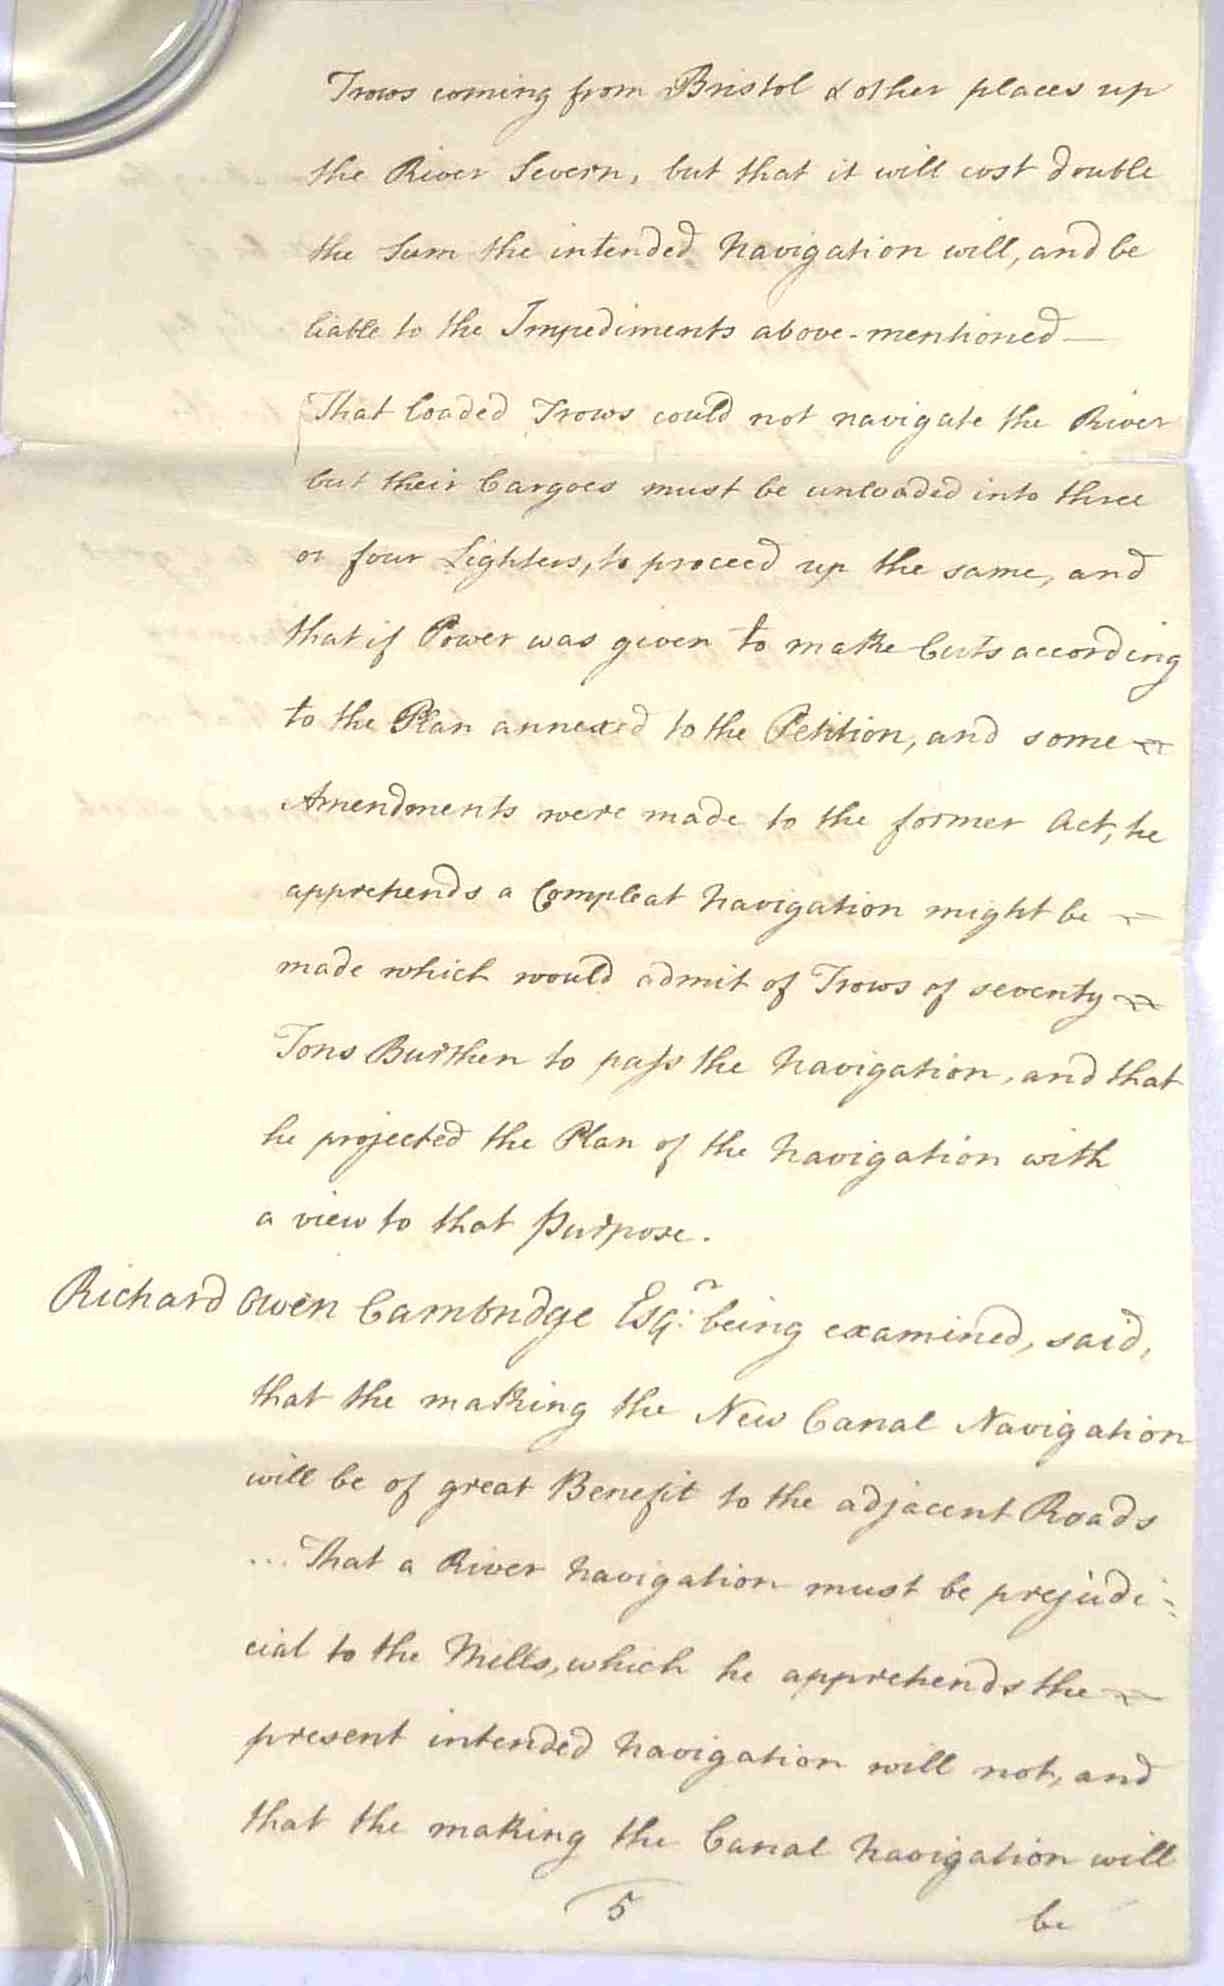 Trows coming from Bristol & other places up
the River Severn, but that it will cost double
the Sum the intended Navigation will, and be
liable to the Impediments above-mentioned—
That loaded Trows could not navigate the River
but their Cargoes must be unloaded into three
or four Lighters, to proceed up the same, and
that if Power was given to make Cuts according
to the Plan annexed to the Petition, and some
Amendments were made to the former Act, he
apprehends a Compleat Navigation might be
made which would admit of Trows of seventy
Tons Burthen to pass the Navigation, and that
he projected the Plan of the Navigation with
a view to that Purpose.
Richard Owen Cambridge Esqr. being examined, said,
that the making the New Canal Navigation
will be of great Benefit to the adjacent Roads
... That a River Navigation must be prejudi-
cial to the Mills, which he apprehends the
present intended Navigation will not, and
that the making the Canal Navigation will
5
be